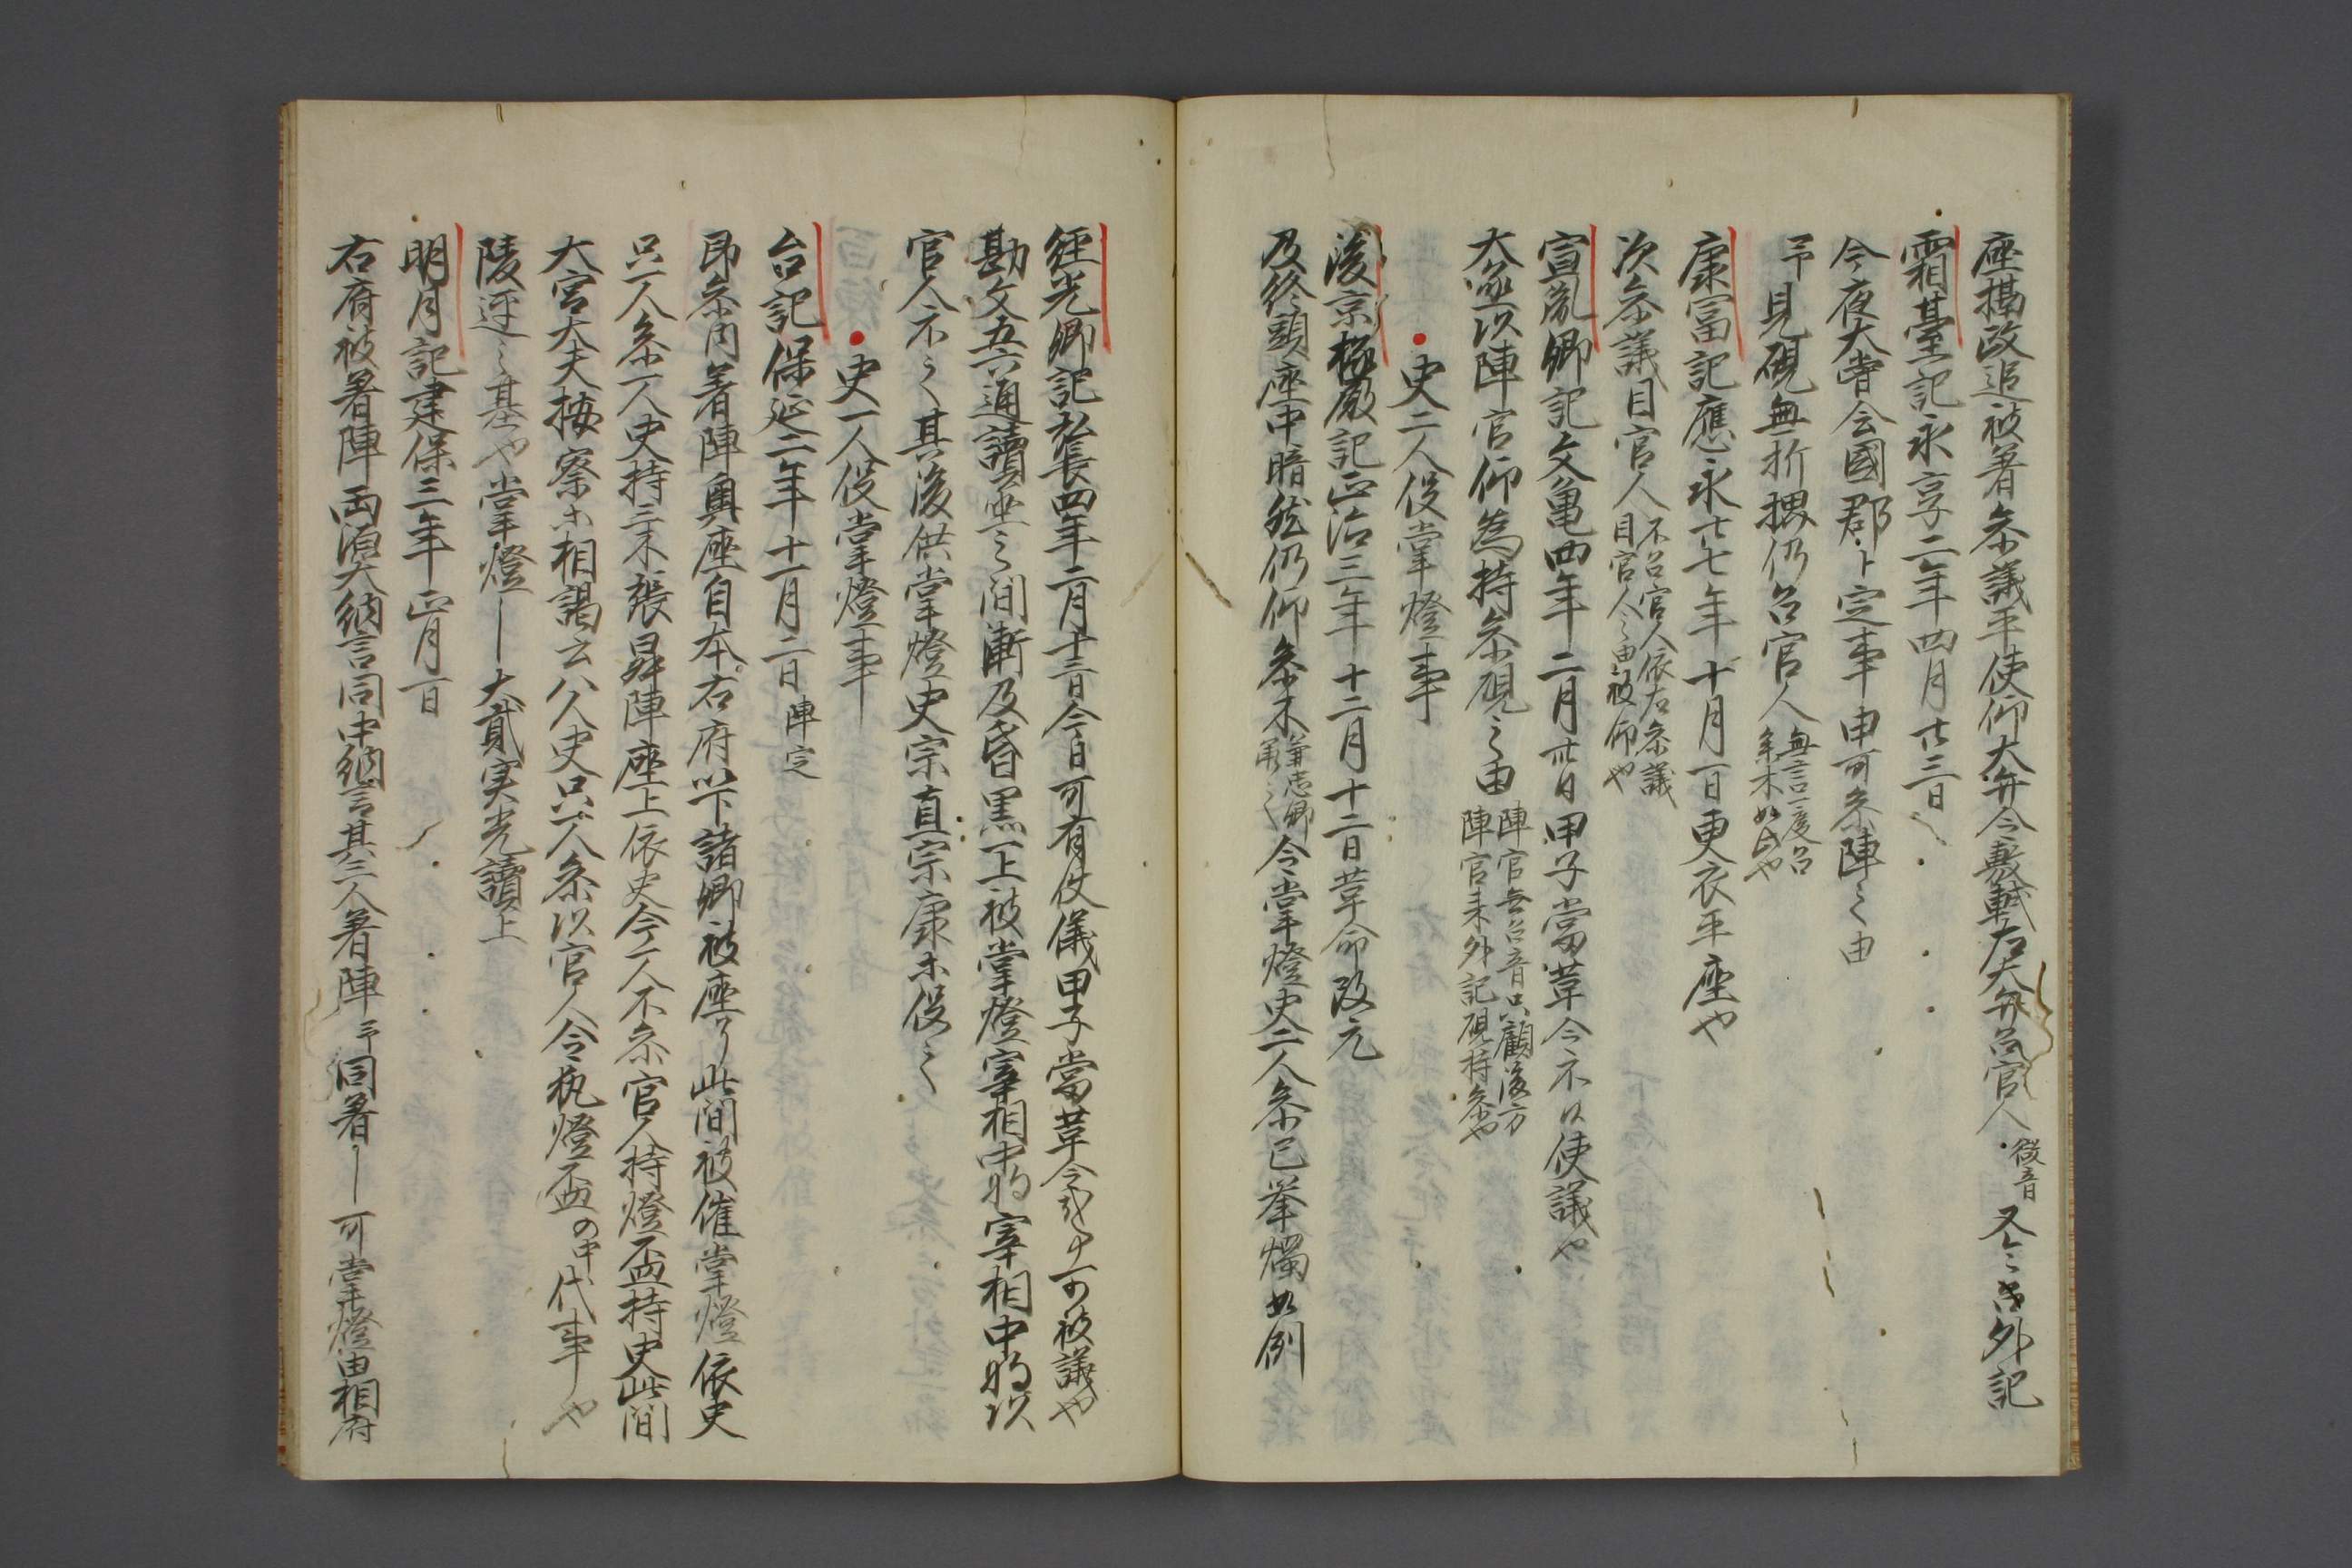 座揖改追被著参議平使仰大弁令敷軾右大弁召官人 微音 又令召外記
霜臺記永享二年四月廿三日
今夜大嘗会國郡卜定事申可参陣之由
予見硯無折堺仍召官人 無言一度召 参木如此也
康冨記應永廿七年十月一日更衣平座也
次参議目官人 不召官人依右参議 目官人之由被仰也
宣胤卿記文亀四年二月卅日甲子當革令不以使議也
大丞以陣官仰為持参硯之由 陣官無召音只顧後方 陣官来外記硯持参也
史二人役掌燈事
後京極殿記正治三年十二月十二日革命改元
及終頭座中暗然仍仰参木 兼忠卿 令掌燈史二人参已挙燭如例
経光卿記弘長四年二月十三日今日可有仗儀甲子當革令哉否可被議也
勘文五六通讀畢之間漸及昏黒上被掌燈宰相中将宰相中将以
官人不之其後供掌燈史宗直宗康等役之
史一人役掌燈事
台記保延二年十一月二日 陣定
昂参内著陣奥座自本右府以下諸卿被座了此間被催掌燈依史
只一人参一人史持三木張昇陣座上依史今一人不参官人持燈盃持史此間
大宮大夫按察等相謁云八人史只一人参以官人令執燈盃の中代事也
陵遅之基也掌燈〡大貳実光讀上
明月記建保三年正月一日
右府被著陣両源大納言同中納言其三人著陣予同著〡可掌燈由相府